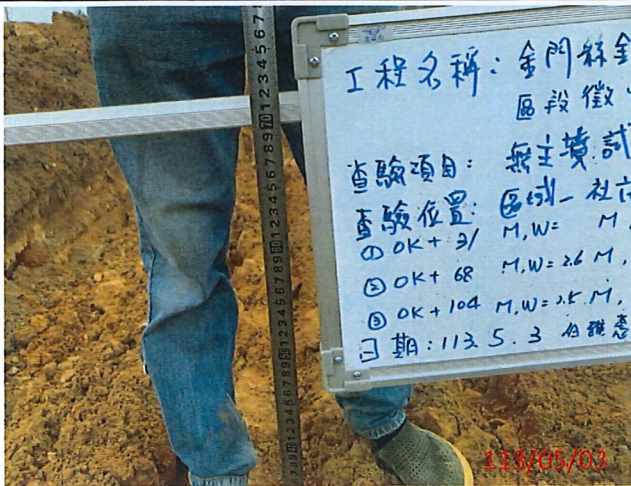 工程名稱: 金門縣金
區段徵
查驗項目: 無主墳試
查驗位置: 區域一社六
① 0K+31 M,W= M,
② 0K+68 M,W=2.6 M,
③ 0K+104 M,W=2.5 M,
日期:113.5.3
113/05/03